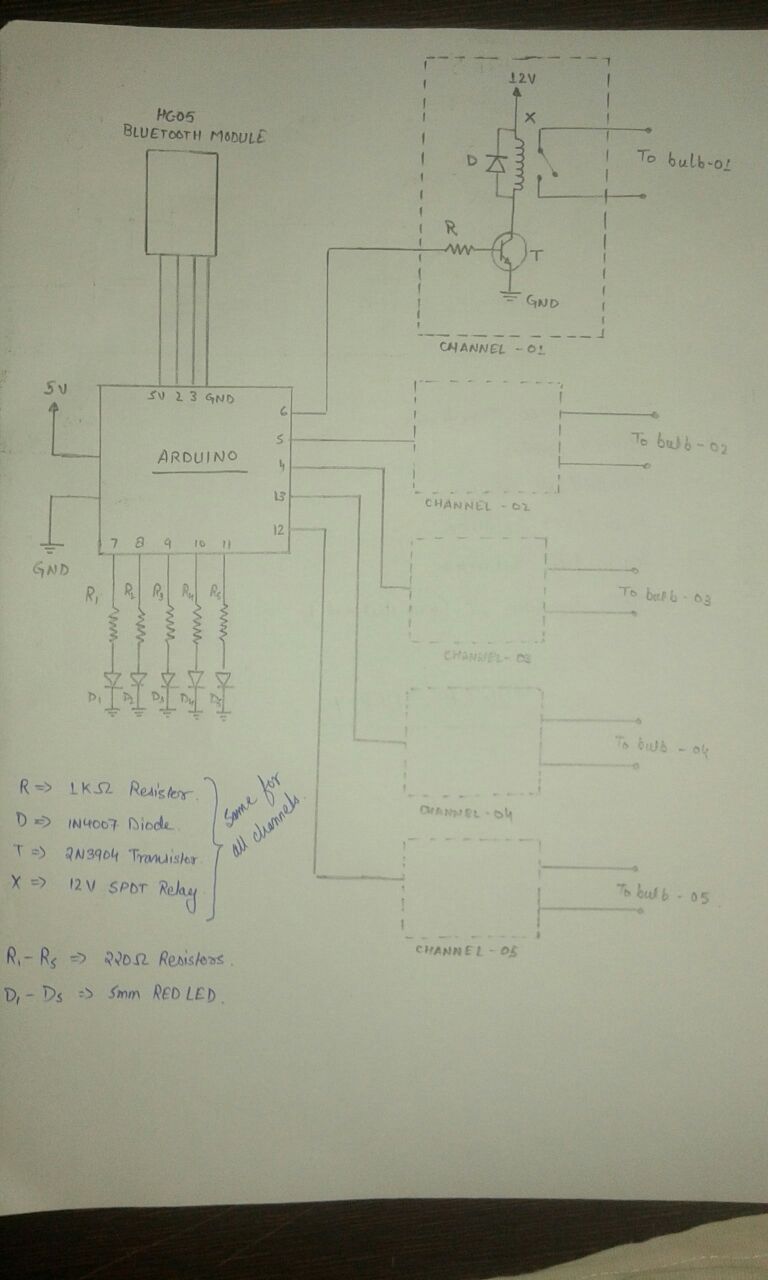 HC05
BLUETOOTH MODULE
12V
X
D
To bulb-01
R
T
GND
CHANNEL - 01
5V
5V 2 3 GND
6
5
4
13
12
ARDUINO
To bulb-02
CHANNEL - 02
GND
7 8 9 10 11
R1 R2 R3 R4 R5
To bulb-03
CHANNEL - 03
D1 D2 D3 D4 D5
To bulb - 04
CHANNEL - 04
To bulb - 05
CHANNEL - 05
R => 1KΩ Resistor.
D => 1N4007 Diode.
T => 2N3904 Transistor.
X => 12V SPDT Relay.
Same for
all channels.
R1 - R5 => 220Ω Resistors.
D1 - D5 => 5mm RED LED.